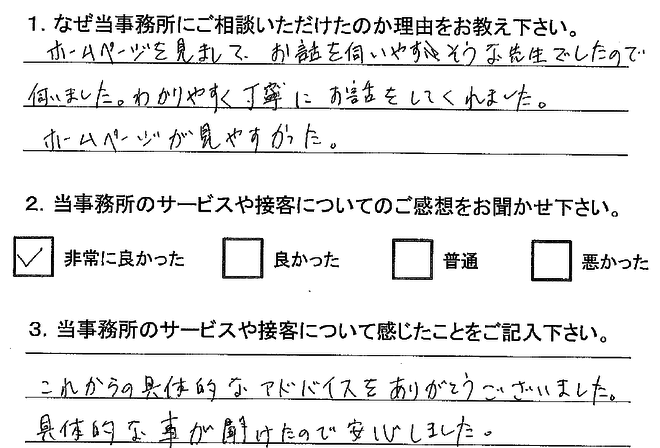 1. なぜ当事務所にご相談いただけたのか理由をお教え下さい。
ホームページを見まして、お話を伺いやすそうな先生でしたので
伺いました。わかりやすく丁寧にお話をしてくれました。
ホームページが見やすかった。
2. 当事務所のサービスや接客についてのご感想をお聞かせ下さい。
✓ 非常に良かった 良かった 普通 悪かった
3. 当事務所のサービスや接客について感じたことをご記入下さい。
これからの具体的なアドバイスをありがとうございました。
具体的な事が聞けたので安心しました。